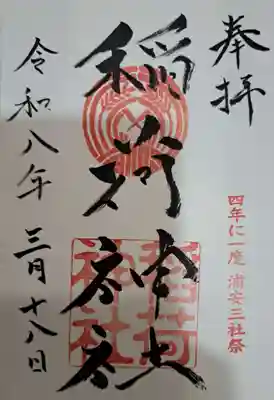 奉拝
四年に一度 浦安三社祭
稲荷神社
稲荷
神社
令和八年 三月十八日